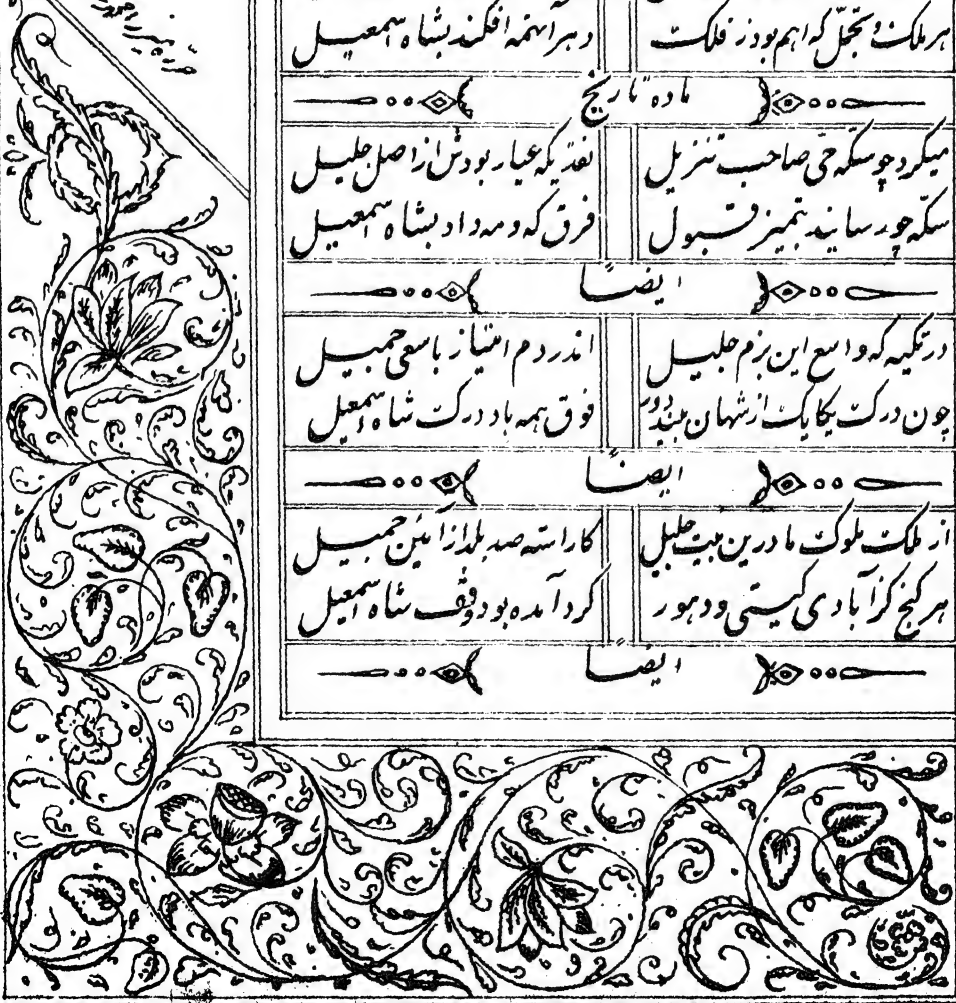 هر ملک و تجمل که اهم بود ز فلک دهر آنهمه افکند بشاه اسمعیل
ماده تاریخ
میکرد چو سکه حی صاحب تنزیل نقدیکه عیار بودش از اصل جلیل
سکه چو رسانید بتمیز قبول فرق که و مه داد بشاه اسمعیل
ایضاً
در تکیه که واسع این بزم جلیل اندر دم امتیاز با سعی جمیل
چون درک یکایک از شهان فوق همه باد درک شاه اسمعیل
ایضاً
از ملک ملوک ما درین بیت جلیل کاراسته صد بلد از آئین جمیل
هر گنج کز آبادی گیتی و دهور گرد آمده بود وقف شاه اسمعیل
ایضاً